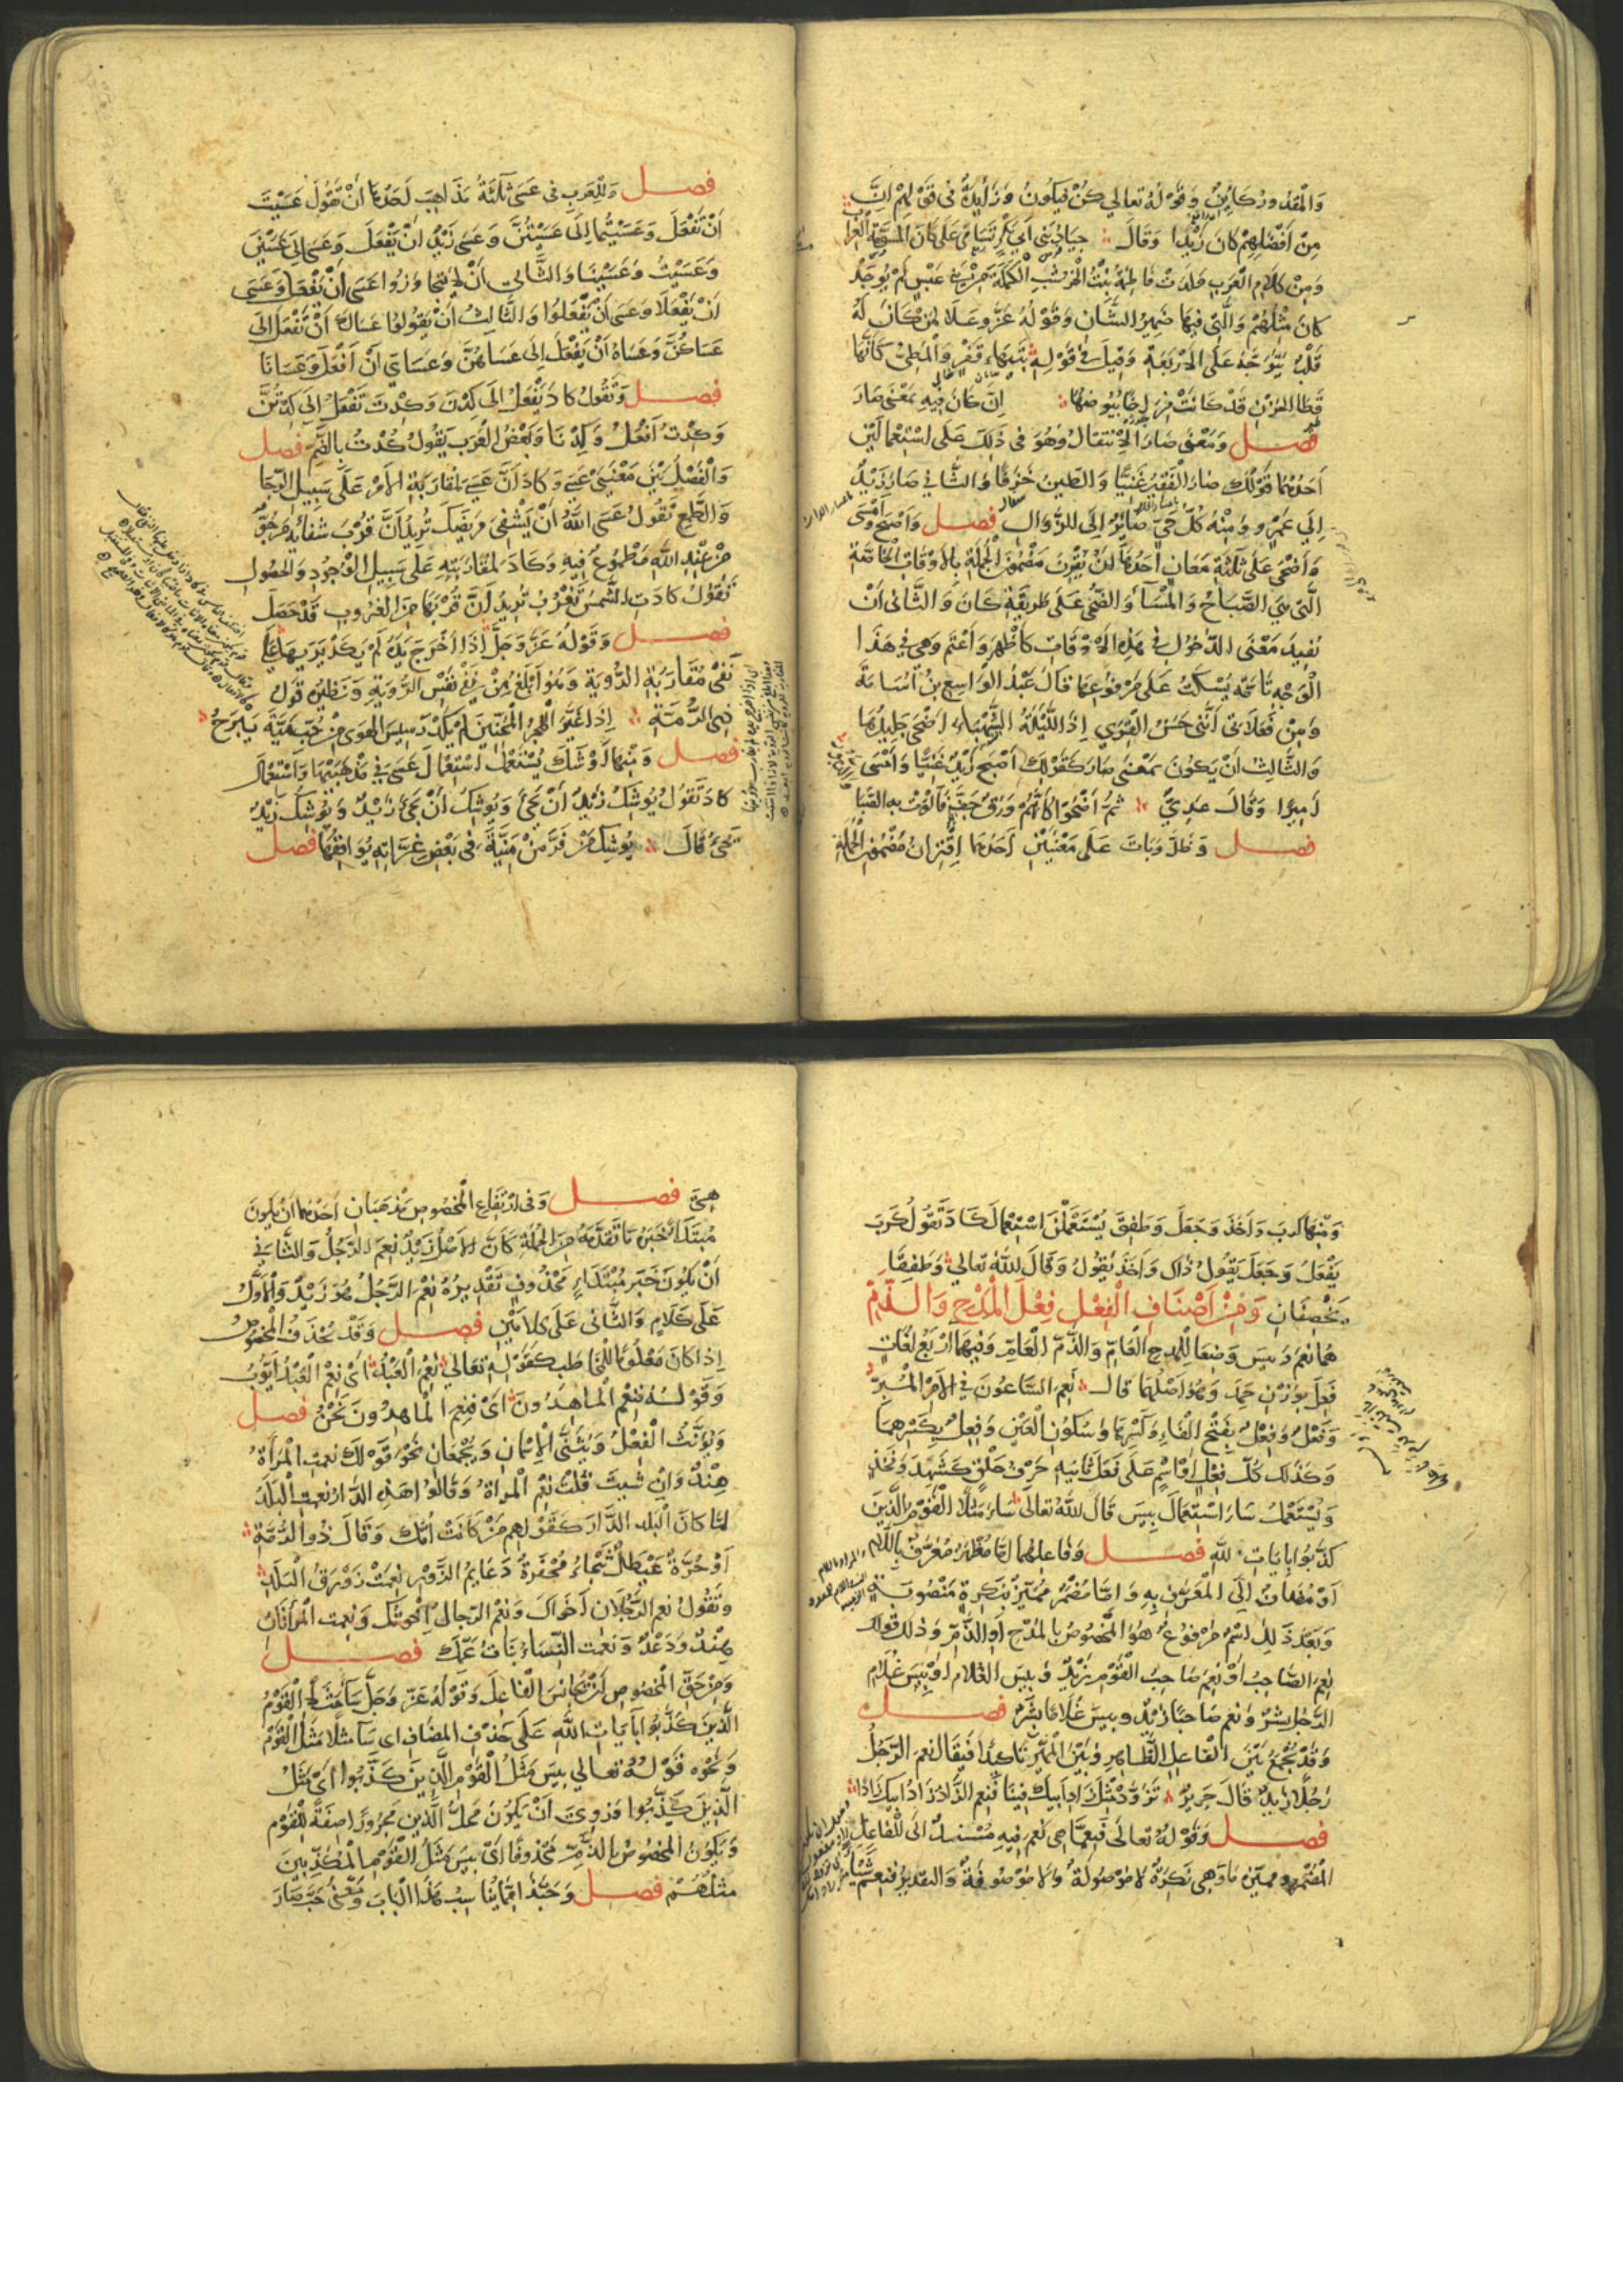 وَالْمَقْدُورُ كَائِنٌ وَقَوْلُهُ تعالى كُنْ فَيَكُونُ وَزَائِدَةٌ في قَوْلِهِمْ اِنَّ
مِنْ اَفْضَلِهِمْ كَانَ زَيْدًا وَقَالَ جِيَادُ بَنِي اَبِي بَكْرٍ تَسَامَى عَلَى كَانَ الْمُسَوَّمَةِ الْعِرَابِ
وَمِنْ كَلَامِ الْعَرَبِ وَلَدَتْ فَاطِمَةُ بِنْتُ الْخُرْشُبِ الْكَمَلَةَ مِنْ بَنِي عَبْسٍ لَمْ يُوجَدْ
كَانَ مِثْلُهُمْ وَالَّتِي فِيهَا ضَمِيرُ الشَّانِ وَقَوْلُهُ عَزَّ وَعَلَا لِمَنْ كَانَ لَهُ
قَلْبٌ يَتَوَجَّهُ عَلَى الْأَرْبَعَةِ وَقِيلَ فِي قَوْلِهِ بِتَيْهَاءَ قَفْرٍ وَالْمَطِيُّ كَأَنَّهَا
قَطَا الْحَزْنِ قَدْ كَانَتْ فِرَاخًا بُيُوضُهَا اِنَّ كَانَ فِيهِ بِمَعْنَى صَارَ
فصل وَمَعْنَى صَارَ الْاِنْتِقَالُ وَهُوَ فِي ذٰلِكَ عَلَى اسْتِعْمَالَيْنِ
اَحَدُهُمَا قَوْلُكَ صَارَ الْفَقِيرُ غَنِيًّا وَالطِّينُ خَزَفًا وَالثَّانِي صَارَ زَيْدٌ
اِلَى عَمْرٍو وَمِنْهُ كُلُّ حَيٍّ صَائِرٌ اِلَى لِلزَّوَالِ فصل وَاَصْبَحَ وَاَمْسَى
وَاَضْحَى عَلَى ثَلٰثَةِ مَعَانٍ اَحَدُهَا اَنْ يُقْرَنَ مَضْمُونُ الْجُمْلَةِ بِالْاَوْقَاتِ الْخَاصَّةِ
الَّتِي هِيَ الصَّبَاحُ وَالْمَسَاءُ وَالضُّحَى عَلَى طَرِيقَةِ كَانَ وَالثَّانِي اَنْ
تُفِيدَ مَعْنَى الدُّخُولِ فِي هٰذِهِ الْاَوْقَاتِ كَاَظْهَرَ وَاَعْتَمَ وَهِيَ فِي هٰذَا
الْوَجْهِ تَامَّةٌ يُسْكَتُ عَلَى مَرْفُوعِهَا قَالَ عَبْدُ الْوَاسِعِ بْنُ اُسَامَةَ
وَمِنْ فَعَلَاتِي اَنَّنِي حَسَنُ الْقِرَى اِذَا اللَّيْلَةُ الشَّهْبَاءُ اَضْحَى جَلِيدُهَا
وَالثَّالِثُ اَنْ يَكُونَ بِمَعْنَى صَارَ كَقَوْلِكَ اَصْبَحَ زَيْدٌ غَنِيًّا وَاَمْسَى
اَمِيرًا وَقَالَ عَدِيٌّ ثُمَّ اَضْحَوْا كَاَنَّهُمْ وَرَقٌ جَفَّ فَاَلْوَتْ بِهِ الصَّبَا
فصل وَظَلَّ وَبَاتَ عَلَى مَعْنَيَيْنِ اَحَدُهُمَا اِقْتِرَانُ مَضْمُونِ الْجُمْلَةِ
فصل وَلِلْعَرَبِ فِي عَسَى ثَلٰثَةُ مَذَاهِبَ اَحَدُهَا اَنْ تَقُولَ عَسَيْتَ
اَنْ تَفْعَلَ وَعَسَيْتُمَا اِلَى عَسَيْتُنَّ وَعَسَى زَيْدٌ اَنْ يَفْعَلَ وَعَسَيَا اِلَى عَسَيْنَ
وَعَسَيْتُ وَعَسَيْنَا وَالثَّانِي اَنْ لَا يَتَجَاوَزُوا عَسَى اَنْ يَفْعَلَ وَعَسَى
اَنْ يَفْعَلَا وَعَسَى اَنْ يَفْعَلُوا وَالثَّالِثُ اَنْ يَقُولُوا عَسَاكَ اَنْ تَفْعَلَ اِلَى
عَسَاكُنَّ وَعَسَاهُ اَنْ يَفْعَلَ اِلَى عَسَاهُنَّ وَعَسَانِي اَنْ اَفْعَلَ وَعَسَانَا
فصل وَتَقُولُ كَادَ يَفْعَلُ اِلَى كِدْنَ وَكِدْتَ تَفْعَلُ اِلَى كِدْتُنَّ
وَكِدْتُ اَفْعَلُ وَكِدْنَا وَبَعْضُ الْعَرَبِ يَقُولُ كُدْتُ بِالضَّمِّ فصل
وَالْفَصْلُ بَيْنَ مَعْنَيَيْ عَسَى وَكَادَ اَنَّ عَسَى لِمُقَارَبَةِ الْاَمْرِ عَلَى سَبِيلِ الرَّجَا
وَالطَّمَعِ تَقُولُ عَسَى اللّٰهُ اَنْ يَشْفِيَ مَرِيضَكَ تُرِيدُ اَنَّ قُرْبَ شِفَائِهِ مَرْجُوٌّ
مِنْ عِنْدِ اللّٰهِ مَطْمُوعٌ فِيهِ وَكَادَ لِمُقَارَبَتِهِ عَلَى سَبِيلِ الْوُجُودِ وَالْحُصُولِ
تَقُولُ كَادَتِ الشَّمْسُ تَغْرُبُ تُرِيدُ اَنَّ قُرْبَهَا مِنَ الْغُرُوبِ قَدْ حَصَلَ
فصل وَقَوْلُهُ عَزَّ وَجَلَّ اِذَا اَخْرَجَ يَدَهُ لَمْ يَكَدْ يَرٰيهَا عَلَى
نَفْيِ مُقَارَبَةِ الرُّؤْيَةِ وَهُوَ اَبْلَغُ مِنْ نَفْيِ نَفْسِ الرُّؤْيَةِ وَنَظِيرُهُ قَوْلُ
ذِي الرُّمَّةِ اِذَا غَيَّرَ الْهَجْرُ الْمُحِبِّينَ لَمْ يَكَدْ رَسِيسُ الْهَوَى مِنْ حُبِّ مَيَّةَ يَبْرَحُ
فصل وَمِنْهَا اَوْشَكَ يُسْتَعْمَلُ اسْتِعْمَالَ عَسَى فِي مَذْهَبَيْهَا وَاسْتِعْمَالَ
كَادَ تَقُولُ يُوشِكُ زَيْدٌ اَنْ يَجِئَ وَيُوشِكُ اَنْ يَجِئَ زَيْدٌ وَيُوشِكُ زَيْدٌ
يَجِئُ قَالَ يُوشِكُ مَنْ فَرَّ مِنْ مَنِيَّتِهِ فِي بَعْضِ غِرَّاتِهِ يُوَافِقُهَا فصل
وَمِنْهَا كَرَبَ وَاَخَذَ وَجَعَلَ وَطَفِقَ يُسْتَعْمَلْنَ اسْتِعْمَالَ كَادَ تَقُولُ كَرَبَ
يَفْعَلُ وَجَعَلَ يَقُولُ ذَاكَ وَاَخَذَ يَقُولُ وَقَالَ اللّٰهُ تَعَالٰى وَطَفِقَا
يَخْصِفَانِ وَمِنْ اَصْنَافِ الْفِعْلِ فِعْلَ الْمَدْحِ وَالذَّمِّ
هُمَا نِعْمَ وَبِيسَ وُضِعَا لِلْمَدْحِ الْعَامِّ وَالذَّمِّ الْعَامِّ وَفِيهِمَا اَرْبَعُ لُغَاتٍ
فَعِلَ بِوَزْنِ حَمِدَ وَهُوَ اَصْلُهُمَا قَالَ نَعِمَ السَّاعُونَ فِي الْاَمْرِ الْمُبِرّ
وَفَعْلَ وَفِعْلَ بِفَتْحِ الْفَاءِ وَكَسْرِهَا وَسُكُونِ الْعَيْنِ وَفِعِلَ بِكَسْرِهِمَا
وَكَذٰلِكَ كُلُّ فِعْلٍ اَوِ اسْمٍ عَلَى فَعِلَ ثَانِيهِ حَرْفُ حَلْقٍ كَشَهِدَ وَفَخِذٍ
وَيُسْتَعْمَلُ سَاءَ اسْتِعْمَالَ بِيسَ قَالَ اللّٰهُ تَعَالٰى سَاءَ مَثَلًا الْقَوْمُ الَّذِينَ
كَذَّبُوا بِاٰيَاتِ اللّٰهِ فصل وَفَاعِلُهُمَا اِمَّا مُظْهَرٌ مُعَرَّفٌ بِاللَّامِ
اَوْ مُضَافٌ اِلَى الْمُعَرَّفِ بِهِ وَاِمَّا مُضْمَرٌ مُمَيَّزٌ بِنَكِرَةٍ مَنْصُوبَةٍ
وَبَعْدَ ذٰلِكَ اسْمٌ مَرْفُوعٌ هُوَ الْمَخْصُوصُ بِالْمَدْحِ اَوِ الذَّمِّ وَذٰلِكَ قَوْلُكَ
نِعْمَ الصَّاحِبُ اَوْ نِعْمَ صَاحِبُ الْقَوْمِ زَيْدٌ وَبِيسَ الْغُلَامُ اَوْ بِيسَ غُلَامُ
الرَّجُلِ بِشْرٌ وَنِعْمَ صَاحِبًا زَيْدٌ وَبِيسَ غُلَامًا بِشْرٌ فصل
وَقَدْ يُجْمَعُ بَيْنَ الْفَاعِلِ الظَّاهِرِ وَبَيْنَ الْمُمَيِّزِ تَاكِيدًا فَيُقَالُ نِعْمَ الرَّجُلُ
رَجُلًا زَيْدٌ قَالَ جَرِيرٌ تَزَوَّدْ مِثْلَ زَادِ اَبِيكَ فِينَا فَنِعْمَ الزَّادُ زَادُ اَبِيكَ زَادًا
فصل وَقَوْلُهُ تَعَالٰى فَنِعِمَّا هِيَ نِعْمَ فِيهِ مُسْنَدٌ اِلَى الْفَاعِلِ
الْمُضْمَرِ وَمُمَيِّزُهُ مَا وَهِيَ نَكِرَةٌ لَا مَوْصُولَةٌ وَلَا مَوْصُوفَةٌ وَالتَّقْدِيرُ فَنِعْمَ شَيْئًا
هِيَ فصل وَفِي ارْتِفَاعِ الْمَخْصُوصِ مَذْهَبَانِ اَحَدُهُمَا اَنْ يَكُونَ
مُبْتَدَأً خَبَرُهُ مَا تَقَدَّمَهُ مِنَ الْجُمْلَةِ كَاَنَّ الْاَصْلَ زَيْدٌ نِعْمَ الرَّجُلُ وَالثَّانِي
اَنْ يَكُونَ خَبَرَ مُبْتَدَاءٍ مَحْذُوفٍ تَقْدِيرُهُ نِعْمَ الرَّجُلُ هُوَ زَيْدٌ وَالْاَوَّلُ
عَلَى كَلَامٍ وَالثَّانِي عَلَى كَلَامَيْنِ فصل وَقَدْ يُحْذَفُ الْمَخْصُوصُ
اِذَا كَانَ مَعْلُومًا لِلْمُخَاطَبِ كَقَوْلِهِ تَعَالٰى نِعْمَ الْعَبْدُ اَيْ نِعْمَ الْعَبْدُ اَيُّوبُ
وَقَوْلُهُ فَنِعْمَ الْمَاهِدُونَ اَيْ فَنِعْمَ الْمَاهِدُونَ نَحْنُ فصل
وَيُؤَنَّثُ الْفِعْلُ وَيُثَنَّى الْاِسْمَانِ وَيُجْمَعَانِ نَحْوُ قَوْلِكَ نِعْمَتِ الْمَرْاَةُ
هِنْدٌ وَاِنْ شِيتَ قُلْتَ نِعْمَ الْمَرْاَةُ وَقَالُوا هٰذِهِ الدَّارُ نِعْمَتِ الْبَلَدُ
لَمَّا كَانَ الْبَلَدُ الدَّارَ كَقَوْلِهِمْ مَنْ كَانَتْ اُمُّكَ وَقَالَ ذُو الرُّمَّةِ
اَوْ حُرَّةٌ عَيْطَلٌ ثَبْجَاءُ مُجْفَرَةٌ دَعَائِمَ الزَّوْرِ نِعْمَتْ زَوْرَقُ الْبَلَدِ
وَتَقُولُ نِعْمَ الرَّجُلَانِ اَخَوَاكَ وَنِعْمَ الرِّجَالُ اِخْوَتُكَ وَنِعْمَتِ الْمَرْاَتَانِ
هِنْدٌ وَدَعْدٌ وَنِعْمَتِ النِّسَاءُ بَنَاتُ عَمِّكَ فصل
وَمِنْ حَقِّ الْمَخْصُوصِ اَنْ يُجَانِسَ الْفَاعِلَ وَقَوْلُهُ عَزَّ وَجَلَّ سَاءَ مَثَلًا الْقَوْمُ
الَّذِينَ كَذَّبُوا بِاٰيَاتِ اللّٰهِ عَلَى حَذْفِ الْمُضَافِ اى سَاءَ مَثَلًا مَثَلُ الْقَوْمِ
وَنَحْوُهُ قَوْلُهُ تَعَالٰى بِيسَ مَثَلُ الْقَوْمِ الَّذِينَ كَذَّبُوا اَيْ مَثَلُ
الَّذِينَ كَذَّبُوا وَرُوِيَ اَنْ يَكُونَ مَحَلُّ الَّذِينَ مَجْرُورًا صِفَةً لِلْقَوْمِ
وَيَكُونَ الْمَخْصُوصُ بِالذَّمِّ مَحْذُوفًا اَيْ بِيسَ مَثَلُ الْقَوْمِ الْمُكَذِّبِينَ
مَثَلُهُمْ فصل وَحَبَّذَا مِمَّا يُنَاسِبُ هٰذَا الْبَابَ وَمَعْنَى حَبَّ صَارَ